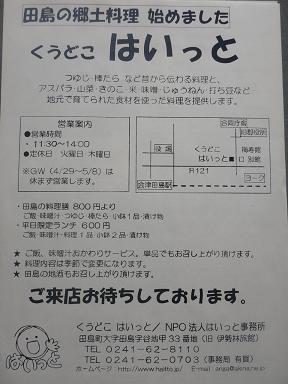 田島の郷土料理 始めました
くうどこ はいっと
つゆじ・棒たら など昔から伝わる料理と、
アスパラ・山菜・きのこ・米・味噌・じゅうねん・打ち豆など
地元で育てられた食材を使った料理を提供します。
営業案内
●営業時間
・11:30~14:00
●定休日 火曜日・木曜日
※GW (4/29~5/8) は
休まず営業します。
合同庁舎
旧郡役所
役場
くうどこ
はいっと■
梅寿館
□ 別館
R121
会津田島駅
ヨーク
・田島の料理膳 800円より
ご飯・味噌汁・つゆじ・棒たら・小鉢1品・漬け物
・平日限定ランチ 600円
ご飯・味噌汁・料理1品・小鉢2品・漬け物
★ ご飯、味噌汁おかわりサービス。単品でもお召し上がり頂けます。
★ 料理内容は季節で変更になります。
★ 田島の地酒もお召し上がり頂けます。
ご来店お待ちしております。
はいっと
くうどこ はいっと/ NPO法人はいっと事務所
田島町大字田島字谷地甲33番地(旧 伊勢林旅館)
TEL 0241-62-8110
TEL 0241-62-0703 (事務局 有賀)
ホームページ:http://www.hajitto.jp/ Eメール: